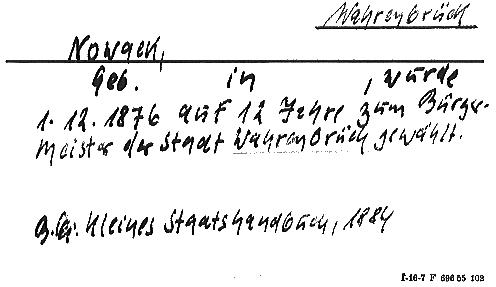 Wahrenbrück
Nowack,
Geb. in , wurde
1.12.1876 auf 12 Jahre zum Bürger-
meister der Stadt Wahrenbrück gewählt.
Kleines Staatshandbuch, 1884
I-16-7 F 696 55 103